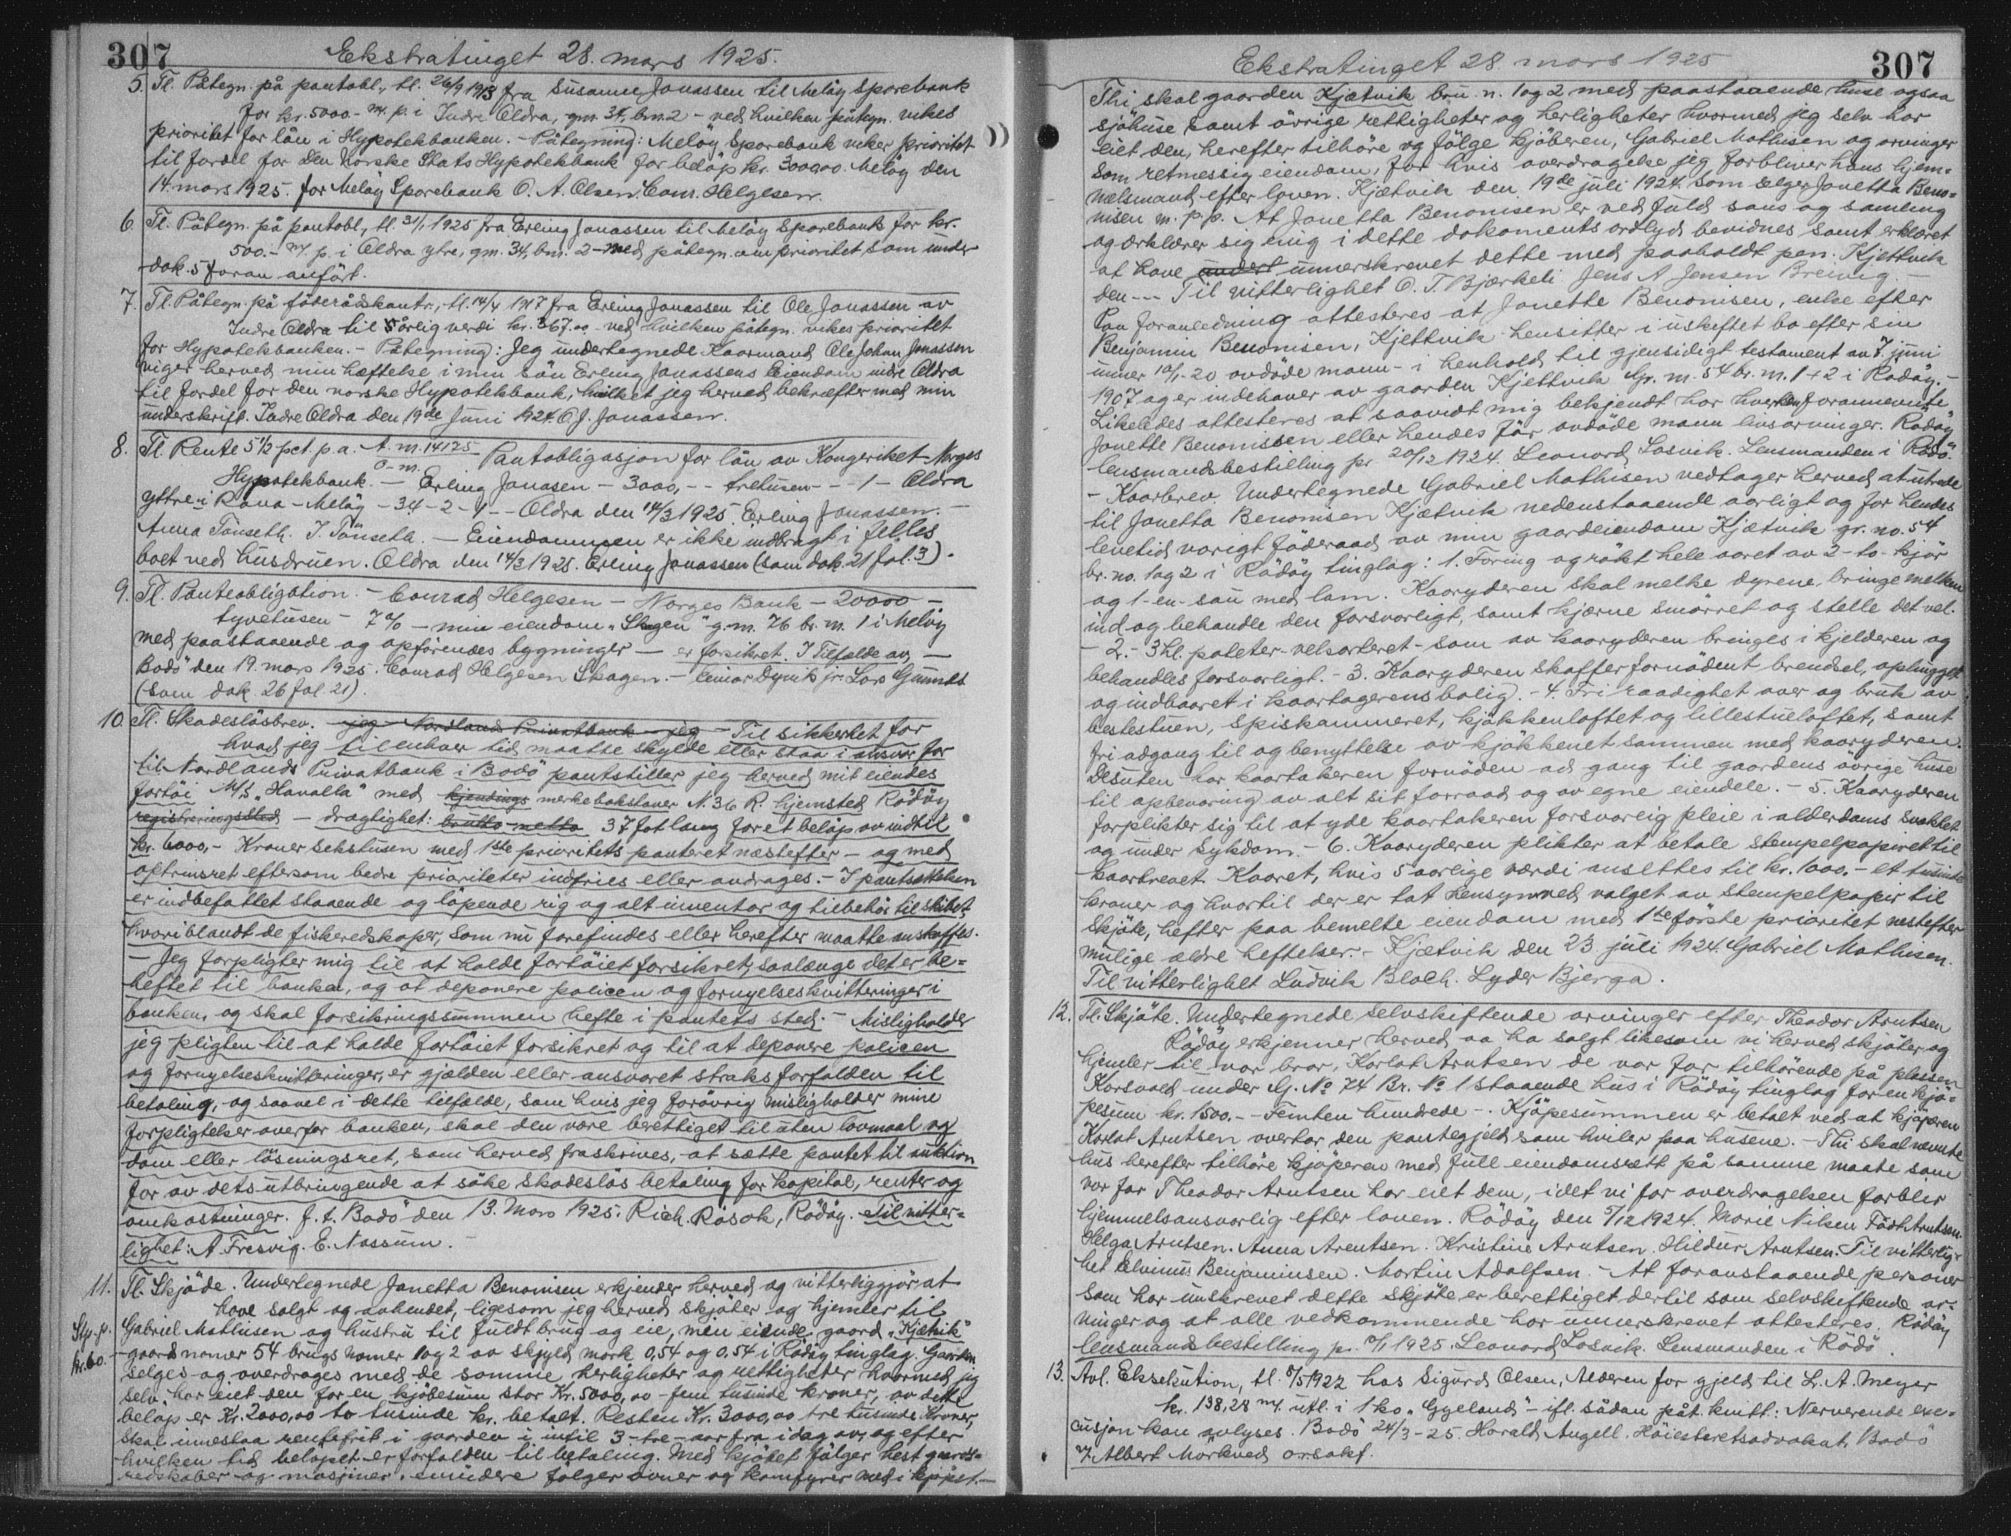 307
Ekstratinget 28. mars 1925.
5. Tl. Påtegn. på pantobl., tl. 26/9 1913 fra Susanne Jonassen til Meløy Sparebank
for kr. 5000.- m. p. i Indre Aldra, gm. 34, brn. 2 - ved hvilken påtegn. vikes
prioritet for lån i Hypotekbanken. - Påtegning: Meløy Sparebank viker prioritet
til fordel for Den Norske Stats Hypotekbank for beløp kr. 3000,00. Meløy den
14. mars 1925. for Meløy Sparebank O. A. Olsen. Conr. Helgesen.
6. Tl. Påtegn. på pantobl., tl. 31/1 1925 fra Erling Jonassen til Meløy Sparebank for kr.
500.- m. p. i Aldra ytre, gm. 34, bm. 2 - med påtegn. om prioritet som under
dok. 5 foran anført.
7. Tl. Påtegn. på føderådskontr., tl. 14/4 1917 fra Erling Jonassen til Ole Jonassen av
Indre Aldra til 5 årlig verdi kr. 367.00 - ved hvilken påtegn. vikes prioritet
for Hypotekbanken. - Påtegning: Jeg undertegnede Kaarmand Ole Johan Jonassen
viger herved min hæftelse i min søn Erling Jonassens Eiendom indre Aldra
til fordel for den norske Hypotekbank, hvilket jeg herved bekræfter med min
underskrift. Indre Aldra den 19de Juni 1924. O. J. Jonassen.
8. Tl. Rente 5 1/2 pct. p. a. A. m. 14125 Pantobligasjon for lån av Kongeriket Norges
O. m.
Hypotekbank. - Erling Jonasen - 3000,- - tretusen - - 1 - Aldra
yttre i Rana - Meløy - 34 - 2 - 1 - - Aldra den 14/3 1925. Erling Jonassen. -
Anna Tönseth. J. Tönseth. - Eiendommen er ikke indbragt i felles
boet ved husdruen. Aldra den 14/3 1925. Erling Jonassen (som dok. 21 fol. 3).
9. Tl. Panteobligation. - Conrad Helgesen - Norges Bank - 20000 -
tyvetusen - 7 % - min eiendom "Skagen" g.m. 76 br. m. 1 i Meløy
med paastaaende og opførendes bygninger - er forsikret. I Tilfælde av, -
Bodø den 19 mars 1925. Conrad Helgesen Skagen. - Einar Dyrvik jr. Lars
(som dok. 26 fol. 21).
10. Tl. Skadesløsbrev. - jeg - Nordlands Privatbank - jeg - Til sikkerhet for
hvad jeg til enhver tid maatte skylde eller staa i ansvar for
til Nordlands Privatbank i Bodø pantstiller jeg herved mit eiendes
fartøi M/S "Havalla" med kjendings merke bokstaver N. 36 R. hjemsted Rødøy
registreringssted - drægtighet: brutto netto 37 fot lang for et beløp av indtil
kr. 6000,- Kroner sekstusen med 1ste prioritets panteret næstefter - og med
optrinsret eftersom bedre prioriteter indfries eller avdrages. - I pantsættelsen
er indbefattet staaende og løpende rig og alt inventar og tilbehør til skibet,
hvoriblandt de fiskeredskaper, som nu forefindes eller herefter maatte anskaffes.
- Jeg forpligter mig til at holde fartøiet forsikret, saalænge det er be=
heftet til banken, og at deponere policen og fornyelseskvitteringer i
banken, og skal forsikringssummen hefte i pantets sted. - Misligholder
jeg pligten til at holde fartøiet forsikret og til at deponere policen
og fornyelseskvitteringer, er gjælden eller ansvaret straks forfalden til
betaling, og saavel i dette tilfælde, som hvis jeg forøvrig misligholder mine
forpligtelser overfor banken, skal den være berettiget til uten lovmaal og
dom eller løsningsret, som herved fraskrives, at sætte pantet til auktion
for av dets utbringende at søke skadesløs betaling for kapital, renter og
omkostninger. f. t. Bodø den 13. Mars 1925. Rich. Råsok, Rødøy. Til vitter=
lighet: A. Fresvig. E. Nossum. -
11. Tl. Skjøde. Undertegnede Janetta Benonisen erkjender herved og vitterliggjør at
have solgt og avhendet, ligesom jeg herved skjøter og hjemler til
Stp. p. Gabriel Mathisen og hustru til fuldt brug og eie, min eiende gaard "Kjætvik"
kr. 60. - gaards nomer 54 brugs nomer 1 og 2 av skjyld mark 0,54 og 0.54 i Rødøy tinglag. Gaarden
selges og overdrages med de samme herligheter og rettigheter hvormed jeg
selv har eiet den for en kjøbesum stor Kr. 5000,00 - fem tusinde kroner, av dette
beløp er Kr. 2000,00 to tusinde kr. betalt. Resten Kr. 3000,00 tre tusinde Kroner,
skal innestaa rentefrit i gaarden i intil 3 - tre - aar fra idag av, og efter
hvilken tid beløpet er forfalden til betaling. Med kjøpet følger hest gaards=
redskaber og masjiner. emindere følger ovner og komfyrer med i kjøpet. -
307
Ekstratinget 28. mars 1925
Thi skal gaarden Kjætvik bru. n. 1 og 2 med paastaaende huse ogsaa
sjøhuse samt øvrige rettigheter og herligheter hvormed jeg selv har
eiet den, herefter tilhøre og følge kjøberen, Gabriel Mathisen og arvinger
som retmessig eiendom, for hvis overdragelse jeg forbliver hans hjem=
melsmand efter loven. Kjætvik den 19de juli 1924. Som selger Janetta Beno=
nisen m. p. p. At Janetta Benonisen er ved fuld sans og samling
og erklærer sig enig i dette dokuments ordlyd bevidnes samt erklæret
at have undert unnerskrevet dette med paaholdt pen. Kjettvik
den --- Til vitterlighet O. T. Bjerkeli Jens A Jensen Breivig. -
Paa foranledning attesteres at Janette Benonisen, enke efter
Benjamin Benonisen, Kjettvik hensitter i uskiftet bo efter sin
unner 10/1-20 avdøde mann - i henhold til gjensidigt testament av 7. juni
1907 og er indehaver av gaarden Kjettvik Gr. m. 54 br. m. 1 + 2 i Rødøy. -
Likeledes attesteres at saavidt mig bekjendt har hverken forannevnte
Janette Benonissen eller hendes før avdøde mann livsarvinger. Rødøy
lensmandsbestilling pr. 20/12 1924. Leonard Losvik. Lensmanden i Rødø.
- Kaarbrev. Undertegnede Gabriel Mathisen vedtager herved at utrede
til Janetta Benonisen Kjætvik nedenstaaende aarligt og for hendes
levetid varigt føderaad av min gaardeiendom Kjætvik gr. no. 54
br. no. 1 og 2 i Rødøy tinglag: 1. Foring og røkt hele aaret av 2 - to - kjør
og 1 - en - sau med lam. Kaaryderen skal melke dyrene bringe melken
ind og behandle den forsvarligt, samt kjærne smørret og stelle det vel.
- 2. - 3 hl. poteter - velsorteret - som av kaaryderen bringes i kjelderen og
behandles forsvarligt. - 3. Kaaryderen skaffer fornødent brendsel, ophugget
og indbaaret i kaartagerens bolig. - 4. Fri raadighet over og bruk av
bestestuen, spiskammeret, kjøkkenloftet og lillestueloftet, samt
fri adgang til og benyttelse av kjøkkenet sammen med kaaryderen.
Desuten har kaartakeren fornøden ad gang til gaardens øvrige huse
til opbevaring av alt sit forraad og av egne eiendele. - 5. Kaaryderen
forplikter sig til at yde kaartakeren forsvarlig pleie i alderdoms svakhet
og under sykdom. - 6. Kaaryderen plikter at betale stempelpapiret til
kaarbrevet. Kaaret, hvis 5 aarlige værdi ansettes til kr. 1000. - et tusinde
kroner og hvortil der er tat hensyn ved valget av stempelpapir til
skjøte, hefter paa bemelte eiendom med 1ste første prioritet nestefter
mulige ældre heftelser. - Kjætvik den 23 juli 1924. Gabriel Mathisen.
Til vitterlighet Ludvik Bloch. Lyder Bjerga.
12. Tl. Skjøte. Undertegnede selvskiftende arvinger efter Theodor Arntsen
Rødøy erkjenner herved aa ha solgt likesom vi herved skjøter og
hjemler til vor bror, Karlot Arntsen de vor far tilhørende på plassen
Korsvold under G. No 74 Br. No 1 staaende hus i Rødøy tinglag for en kjø=
pesum kr. 1500. - - Femten hundrede -. Kjøpesummen er betalt ved at kjøperen
Karlot Arntsen overtar den pantegjeld som hviler paa husene. - Thi skal nevnte
hus herefter tilhøre kjøperen med full eiendomsrett på samme maate som
vor far Theodor Arntsen har eiet dem, idet vi for overdragelsen forblir
hjemmelsansvarlig efter loven. Rødøy den 5/12 1924. Marie Nilsen Født Arntsen
Helga Arntsen. Anna Arentsen. Kristine Arntsen. Hildur Arntsen. Til vitterlig=
het Elvinus Benjaminsen. Martin Adolfsen. - At foranstaaende personer
som har unskrevet dette skjøte er berettiget dertil som selvskiftende ar=
vinger og at alle vedkommende har unnerskrevet attesteres. Rødøy
lensmandsbestilling pr. 10/1 1925. Leonard Losvik. Lensmanden i Rødø.
13. Avl. Eksekution, tl. 8/5 1922 hos Sigurd Olsen, Alderen for gjeld til L. A. Meyer
kr. 138,28 m. utl. i 1 ko "Gyeland" - ifl. sådan påt. kvitt: Nerverende exe=
cusjon kan avlyses. Bodø 24/3-25. Harald Angell. Høiesteretsadvokat, Bodø
v. Albert Morkved o.r.sakf.